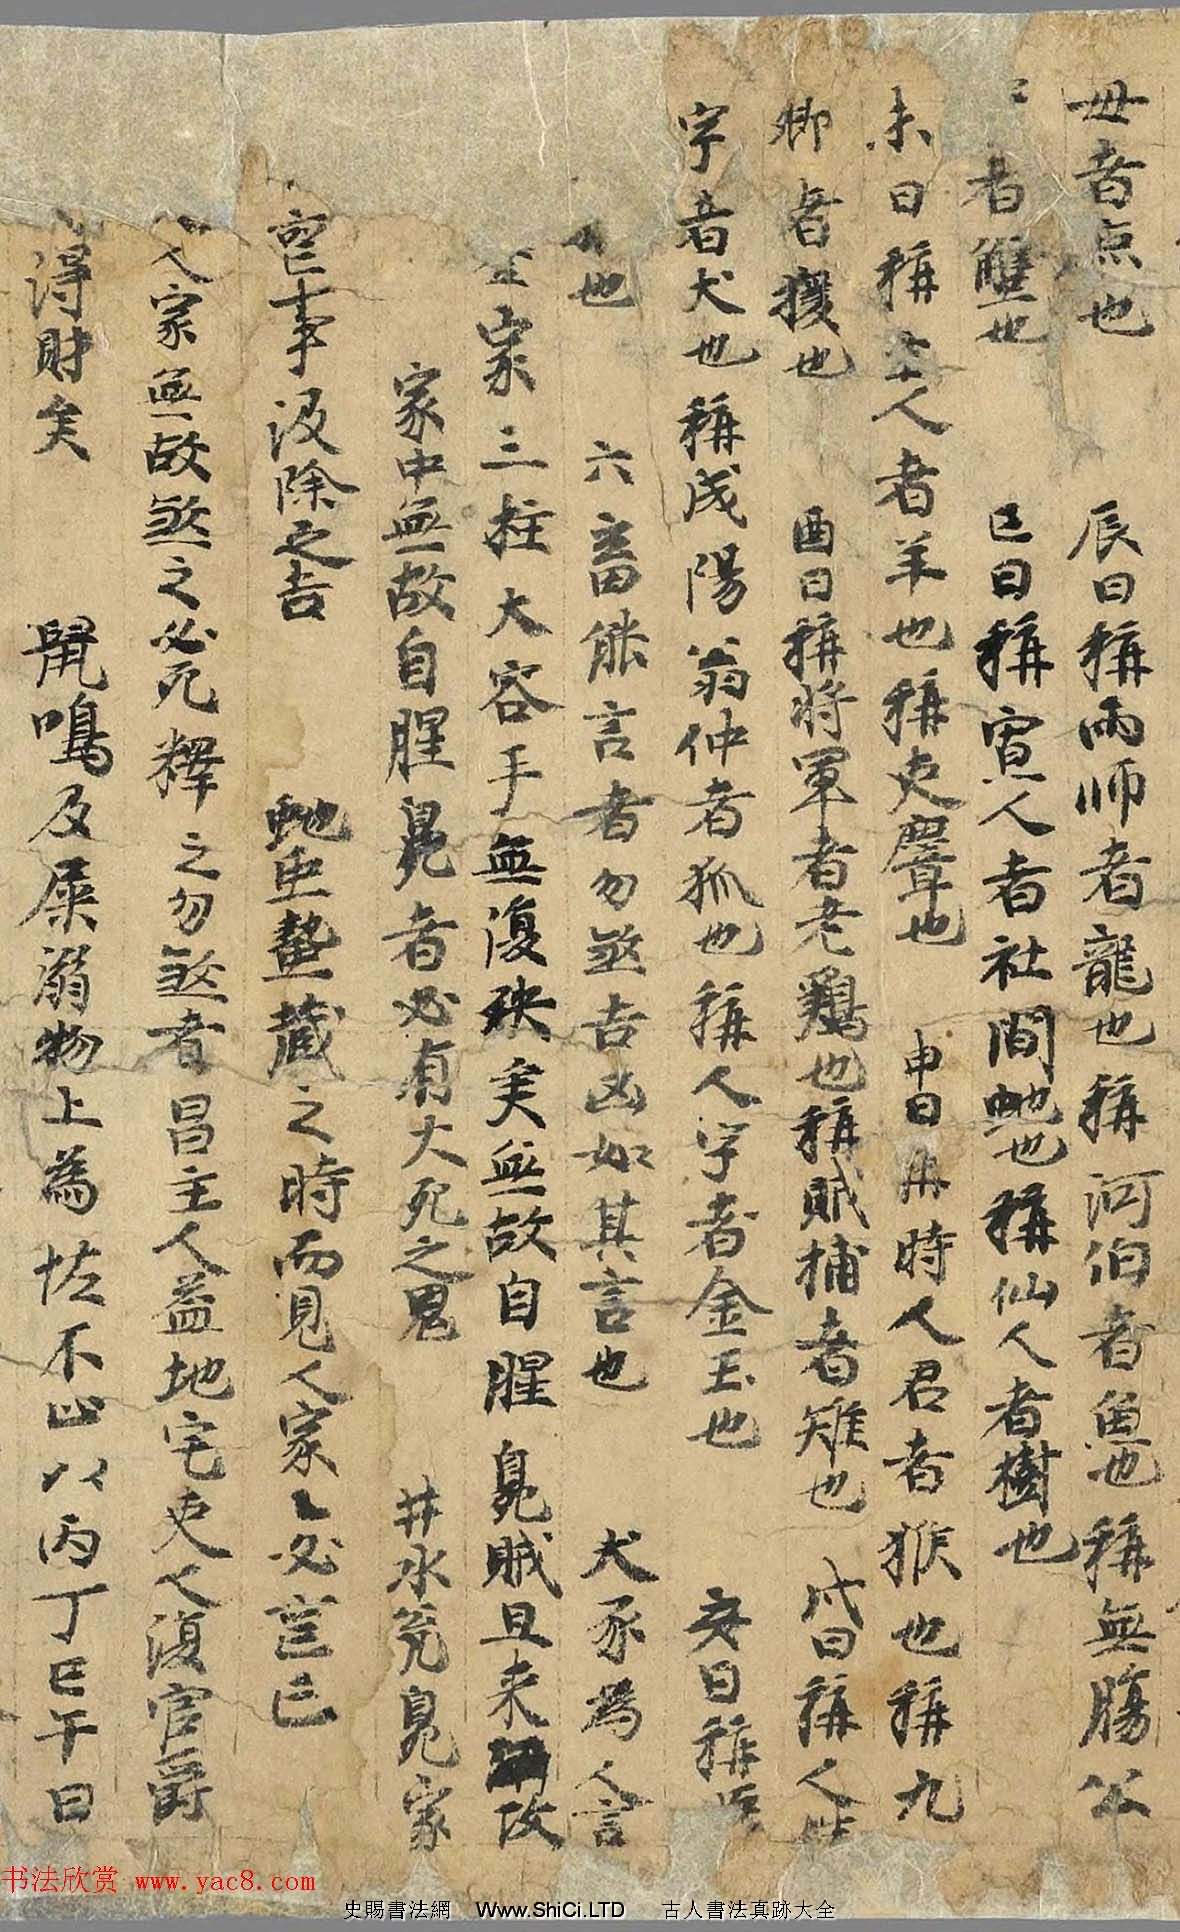 毋者点也　辰日稱雨师者龍也稱河伯者魚也稱無腸公
者蟹也　巳日稱寡人者社間虵也稱仙人者樹也
未日稱主人者羊也稱吏者麞也　申日稱時人君者猴也稱九
卿者猨也　酉日稱将軍者老鷄也稱賊捕者雉也　戌日稱人姓
字者犬也稱成陽翁仲者狐也稱人字者金玉也　亥日稱
也　六畜能言者勿煞吉凶如其言也　犬豕為人言
家三拄大容手無復殃矣無故自腥臭賊且来攻
家中無故自腥臭者必有大死之鬼　井水宛臭家
事汲除之吉　虵虫蟄藏之時而見人家〻必言亡
人家無故煞之必死釋之勿煞者昌主人益地宅吏人復官爵
得財矣　鼠鳴及屎溺物上為怪不止以丙丁巳午日
书法欣赏 www.yac8.com
史賜書法網 Www.ShiCi.LTD 古人書法真跡大全